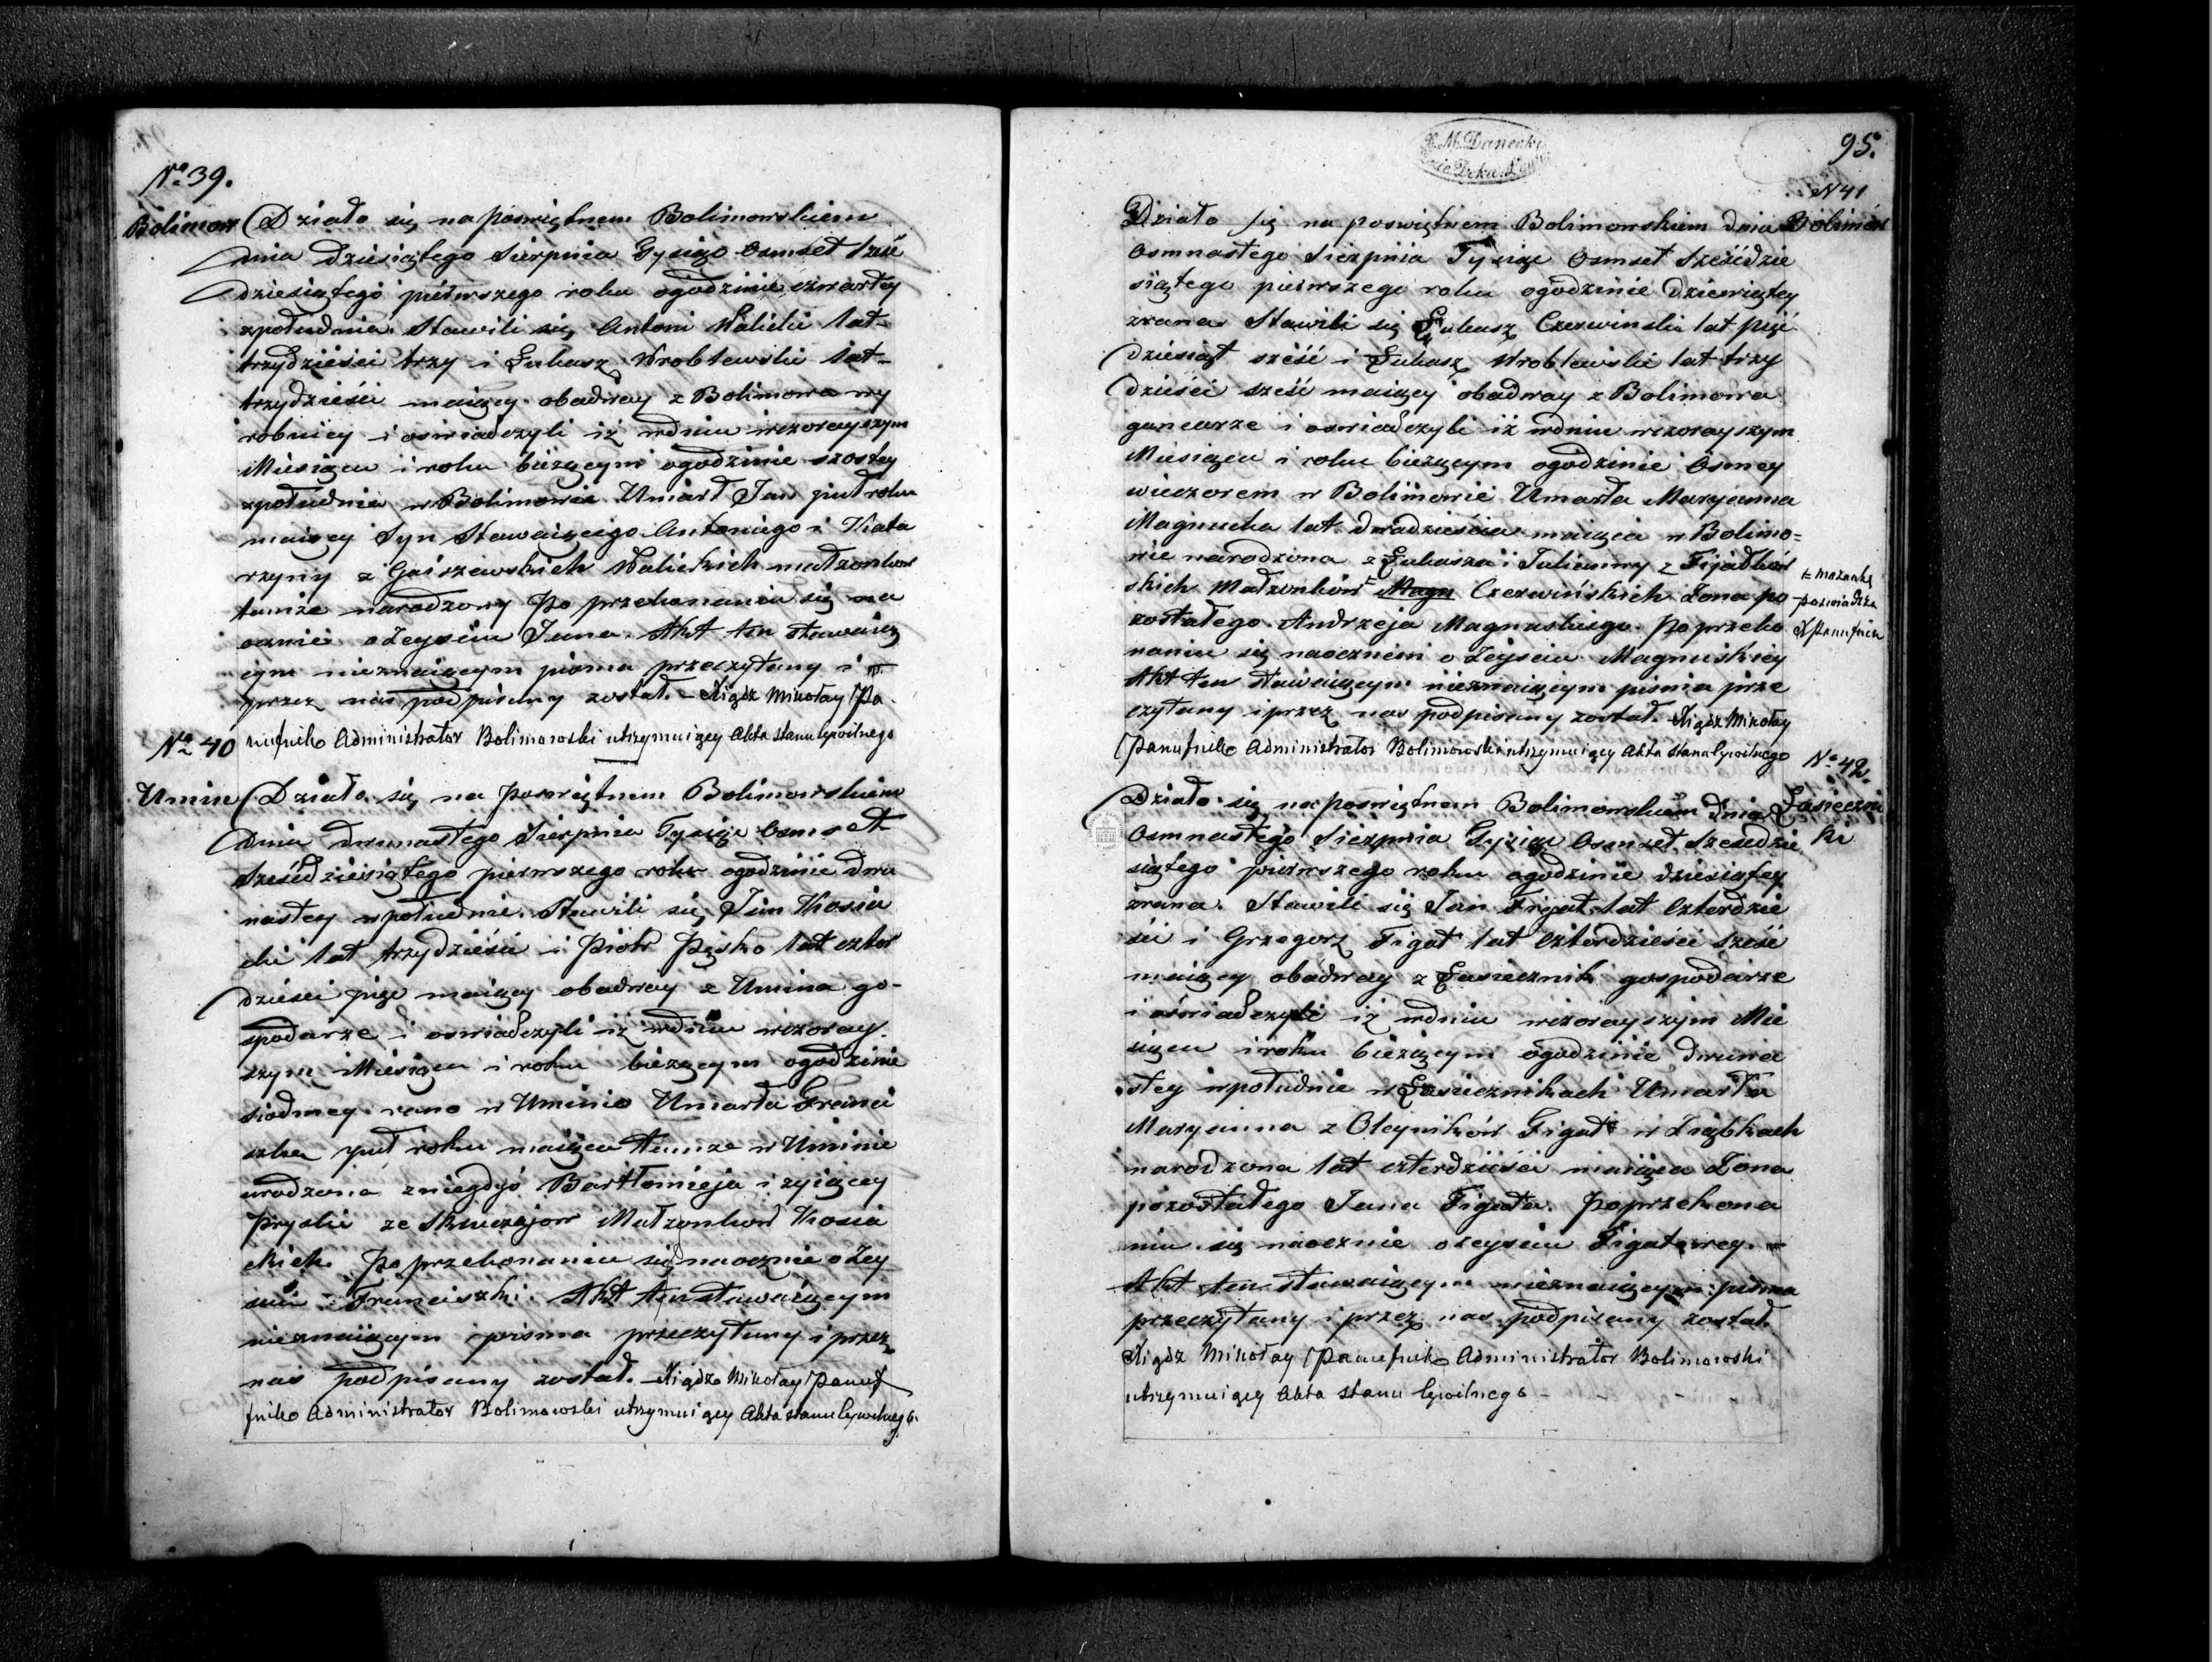 No 39.
Bolimow
Działo się na poswiętnem Bolimowskiem
dnia dziesiątego Sierpnia Tysiąc Osmset sześć
dziesiątego pierwszego roku ogodzinie czwartey
zpołudnia. Stawili się Antoni Walicki lat
trzydzieści trzy i Łukasz Wroblewski lat
trzydzieści maiący obadway z Bolimowa wy
robnicy i oswiadczyli iż wdniu wczorayszym
Miesiącu i roku bieżącym ogodzinie szostey
zpołudnia w Bolimowie Umarł Jan puł roku
maiący Syn Stawaiącego Antoniego i Kata
rzyny z Gaiszewskich Walickich małzonkow
tamże narodzony Po przekonaniu się na
ocznie o Zeyściu Jana. Akt ten stawaiąc
cym nieznaiącym pisma przeczytany i
przez nas podpisany został. – Xiądz Mikołay Pa
nufnik Administrator Bolimowski utrzymuiący Akta stanu Cywilnego
No 40
Umin
Działo się na poswiętnem Bolimowskiem
dnia dwunastego Sierpnia Tysiąc Osmset
sześćdziesiątego pierwszego roku ogodzinie dwu
nastey wpołudnie. Stawili się Jan Kosia
cki lat trzydzieści i Piotr Pęsko lat czter
dzieści pięć maiący obadway z Umina go-
spodarze i oswiadczyli iż wdniu wczoray
szym Miesiącu i roku bieżącym ogodzinie
siodmey rano w Uminie Umarła Franci
szka puł roku maiąca tamże w Uminie
urodzona zniegdyś Bartłomieja i zyiącey
Pryski ze Skuczajow Małzonkow Kosia
ckich. Po przekonaniu się naocznie o Zey
sciu Franciszki. Akt ten stawaiącym
nieznaiącym pisma przeczytany i przez
nas podpisany został. – Xiądz Mikołay Panuf
fnik Administrator Bolimowski utrzymuiący Akta stanu Cywilnego.
95.
N 41
Bolimów
Działo się na poswiętnem Bolimowskiem dnia
Osmnastego Sierpnia Tysiąc Osmset Sześćdzie
siątego pierwszego roku ogodzinie Dziewiątey
zrana Stawili się Łukasz Czerwinski lat pięć
dziesiąt sześć i Łukasz Wroblewski lat trzy
dzieści sześć maiący obadway z Bolimowa
garncarze i oswiadczyli iż wdniu wczorayszym
Miesiącu i roku bieżącym ogodzinie Osmey
wieczorem w Bolimowie Umarła Maryanna
Magnucka lat dwadzieścia maiąca w Bolimo=
wie narodzona z Łukasza i Julianny z Fijałkow
skich Małzonków Magn Czerwińskich Zona po
zostałego Andrzeja Magnuskiego. Po przeko
naniu się naocznem o Zeysciu Magnuskiey
Akt ten stawaiącym nieznaiącym pisma prze
czytany i przez nas podpisany został. Xiądz Mikołay
Panufnik Administrator Bolimowski utrzymuiący Akta stanu Cywilnego
No 42.
Łasieczni
ki
Działo się na poswiętnem Bolimowskiem dnia
Osmnastego Sierpnia Tysiąc Osmset Sześćdzie
siątego pierwszego roku ogodzinie dziesiątey
zrana. Stawili się Jan Figat lat Czterdzie
ści i Grzegorz Figat lat Czterdzieści sześć
maiący obadway z Łasiecznik gospodarze
i oświadczyli iż wdniu wczorayszym Mie
siącu i roku bieżącym ogodzinie dwuna
stey wpołudnie w Łasiecznikach Umarła
Maryanna z Oleyników Figat w Ziąbkach
narodzona lat czterdzieści maiąca Zona
pozostałego Jana Figata. Po przekona
niu się naocznie ozeysciu Figatowey. –
Akt ten stawaiącym nieznaiącym pisma
przeczytany i przez nas podpisany został.
Xiądz Mikołay Panufnik Administrator Bolimowski
utrzymuiący Akta stanu Cywilnego –